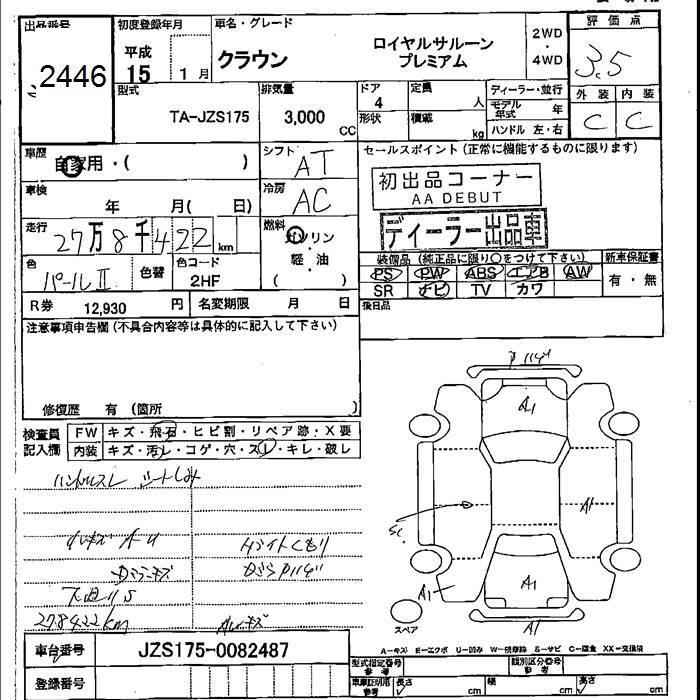 出品番号
2446
初度登録年月
平成
15 1月
車名・グレード
クラウン
ロイヤルサルーン
プレミアム
2WD
・
4WD
評価点
3.5
外装 内装
C C
型式
TA-JZS175
排気量
3,000
CC
ドア
4
形状
定員
人
積載
kg
ディーラー・並行
モデル
年式 年
ハンドル 左・右
車歴
自家用・( )
シフト
AT
車検
年 月( 日)
冷房
AC
走行
27万8千422km
燃料
ガソリン
軽・油
( )
色
パールII
色替
色コード
2HF
R券 12,930 円
名変期限 月 日
セールスポイント(正常に機能するものに限ります)
初出品コーナー
AA DEBUT
ディーラー出品車
装備品(純正品に限り○をつけて下さい)
PS PW ABS エアB AW
SR ナビ TV カワ
新車保証書
有・無
後日品
注意事項申告欄(不具合内容等は具体的に記入して下さい)
修復歴 有(箇所 )
検査員
記入欄
FW キズ・飛石・ヒビ割・リペア跡・X要
内装 キズ・汚レ・コゲ・穴・スレ・キレ・破レ
ハンドルスレ シートしみ
ライトくもり
下回りS
278422km
A1
A1
A1
A1
A1
スペア
A-キズ E-エクボ U-凹み W-補修跡 S-サビ C-腐食 XX-交換済
車台番号
JZS175-0082487
登録番号
型式指定番号
参考
類別区分番号
参考
車庫証明用
参考
長さ
cm
幅
cm
高さ
cm